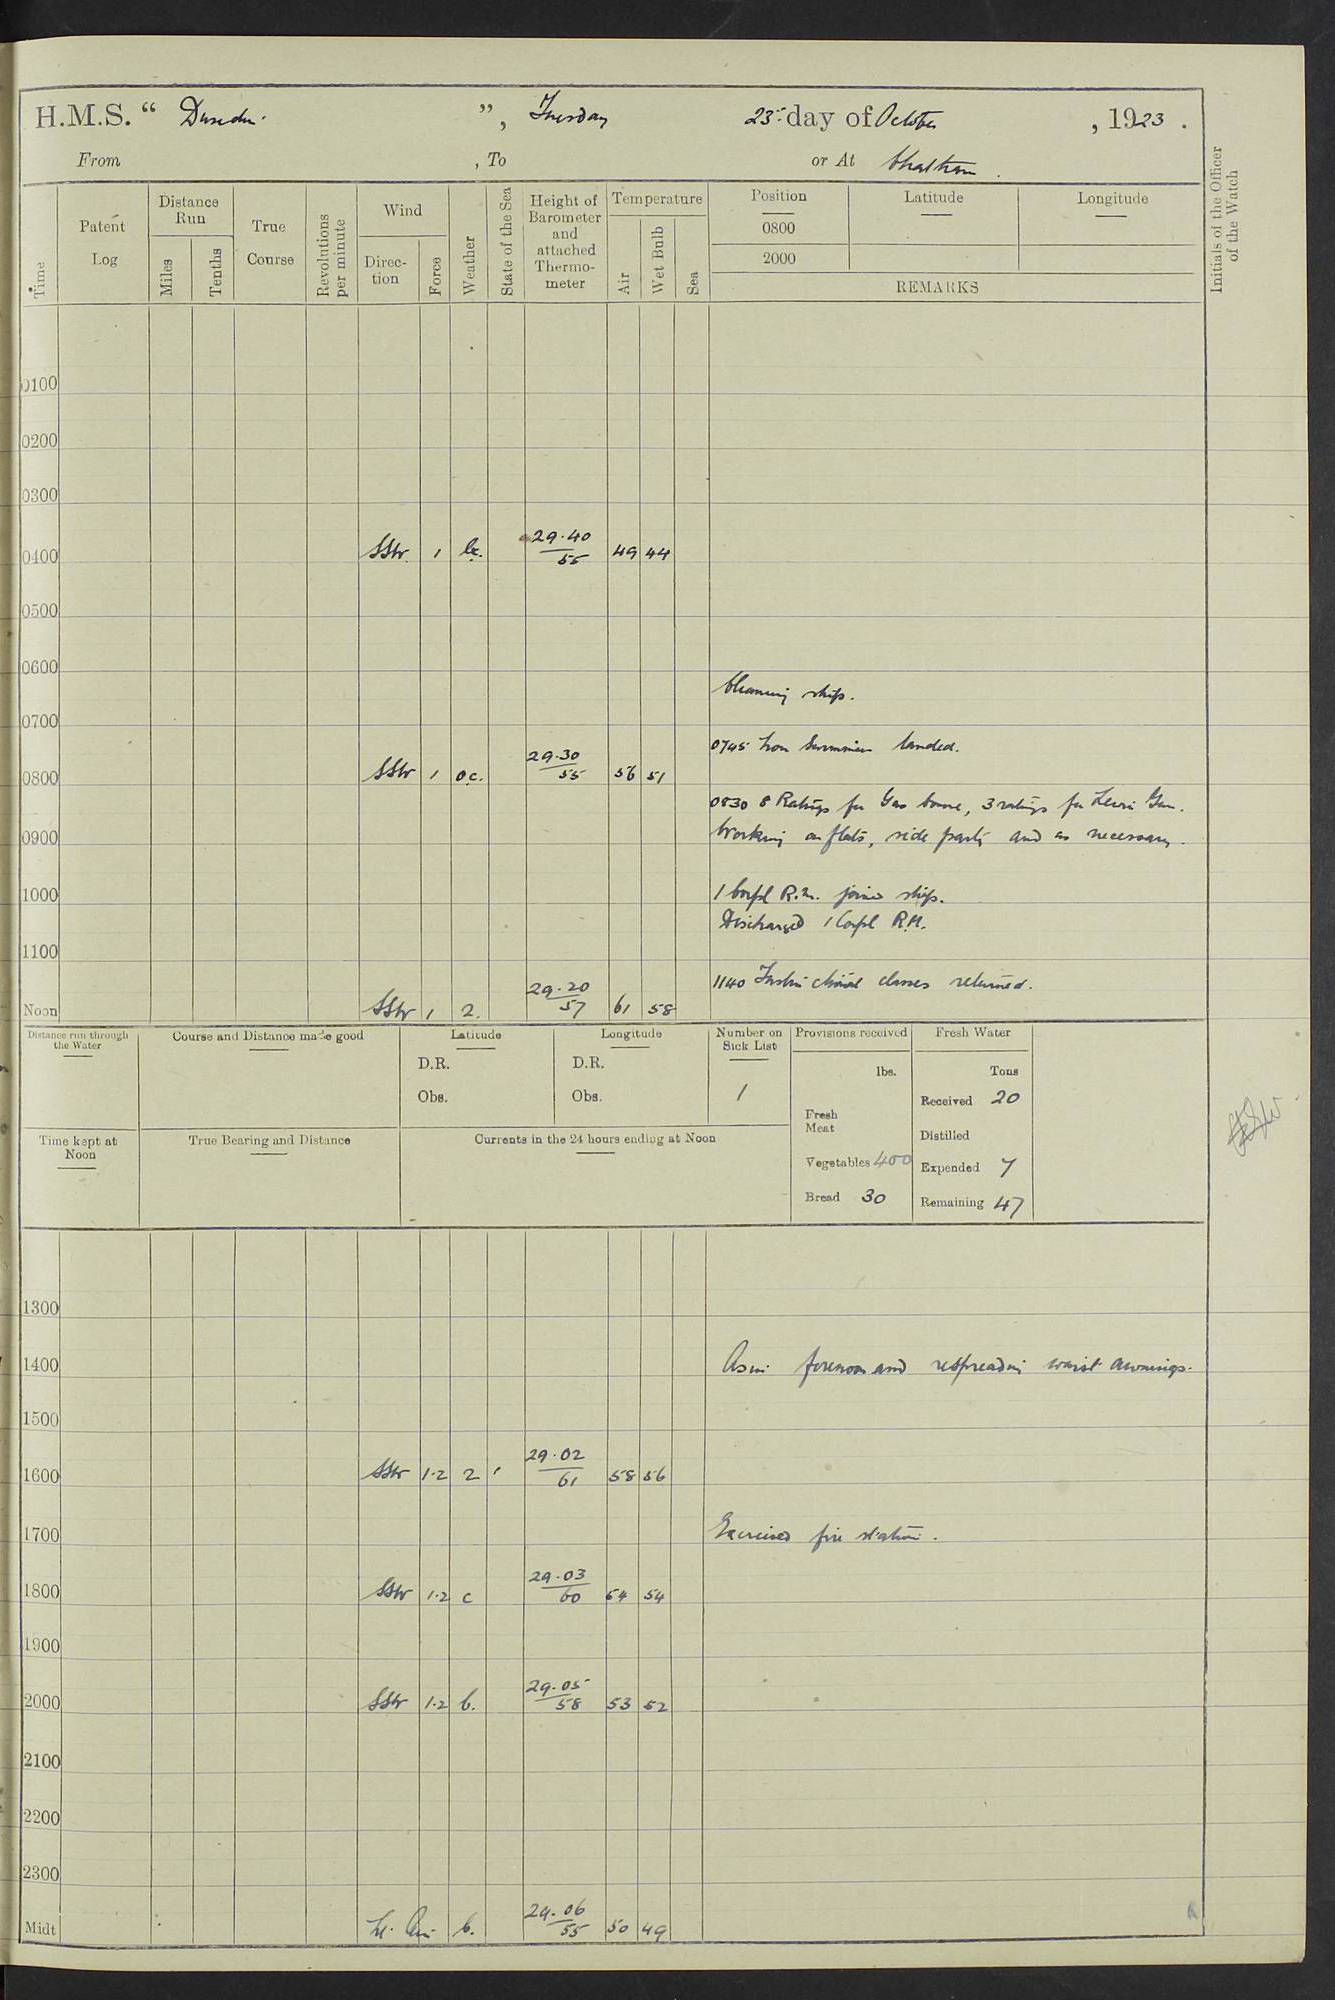 H.M.S. “ Dunedin. ”, Tuesday 23rd day of October, 1923.
From , To or At Chatham.
Time
Patent Log
Distance Run
Miles
Tenths
True Course
Revolutions per minute
Wind
Direction
Force
Weather
State of the Sea
Height of Barometer and attached Thermometer
Temperature
Air
Wet Bulb
Sea
Position Latitude Longitude
0800
2000
REMARKS
Initials of the Officer of the Watch
0100
0200
0300
0400 SSW. 1 bc. 29.40 55 49 44
0500
0600
Cleaning ship.
0700
0745 landed.
0800 SSW 1 oc. 29.30 55 56 51
0830 8 Ratings for Gas course, 3 ratings for Lewis Gun.
0900 Working on flats, side party and as necessary.
1000 1 Corpl R.M. joined ship.
Discharged 1 Corpl R.M.
1100
1140 Instructional classes returned.
Noon SSW 1 2. 29.20 57 61 58
Distance run through the Water
Course and Distance made good
Latitude
D.R.
Obs.
Longitude
D.R.
Obs.
Number on Sick List
1
Provisions received
lbs.
Fresh Meat
Vegetables 400
Bread 30
Fresh Water
Tons
Received 20
Distilled
Expended 7
Remaining 47
Time kept at Noon
True Bearing and Distance
Currents in the 24 hours ending at Noon
1300
1400 As in forenoon and respreading waist awnings.
1500
1600 SSW 1·2 2 29.02 61 58 56
1700 Exercised fire stations.
1800 SSW 1·2 c 29.03 60 54 54
1900
2000 SSW 1·2 b. 29.05 58 53 52
2100
2200
2300
Midt Lt. Air b. 29.06 55 50 49